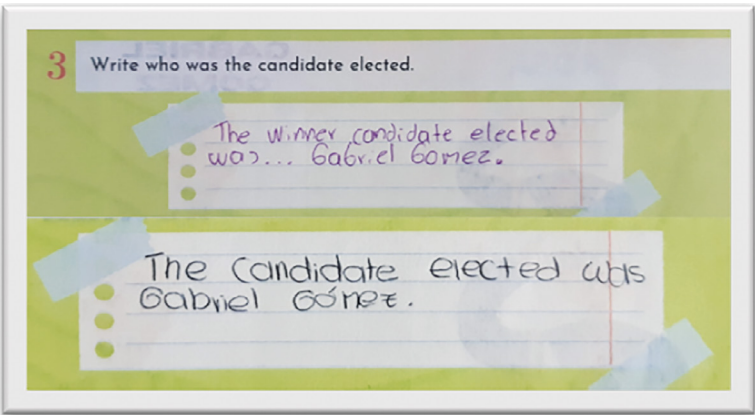 3 Write who was the candidate elected.
The winner candidate elected
was... Gabriel Gomez.
The candidate elected was
Gabriel Gómez.